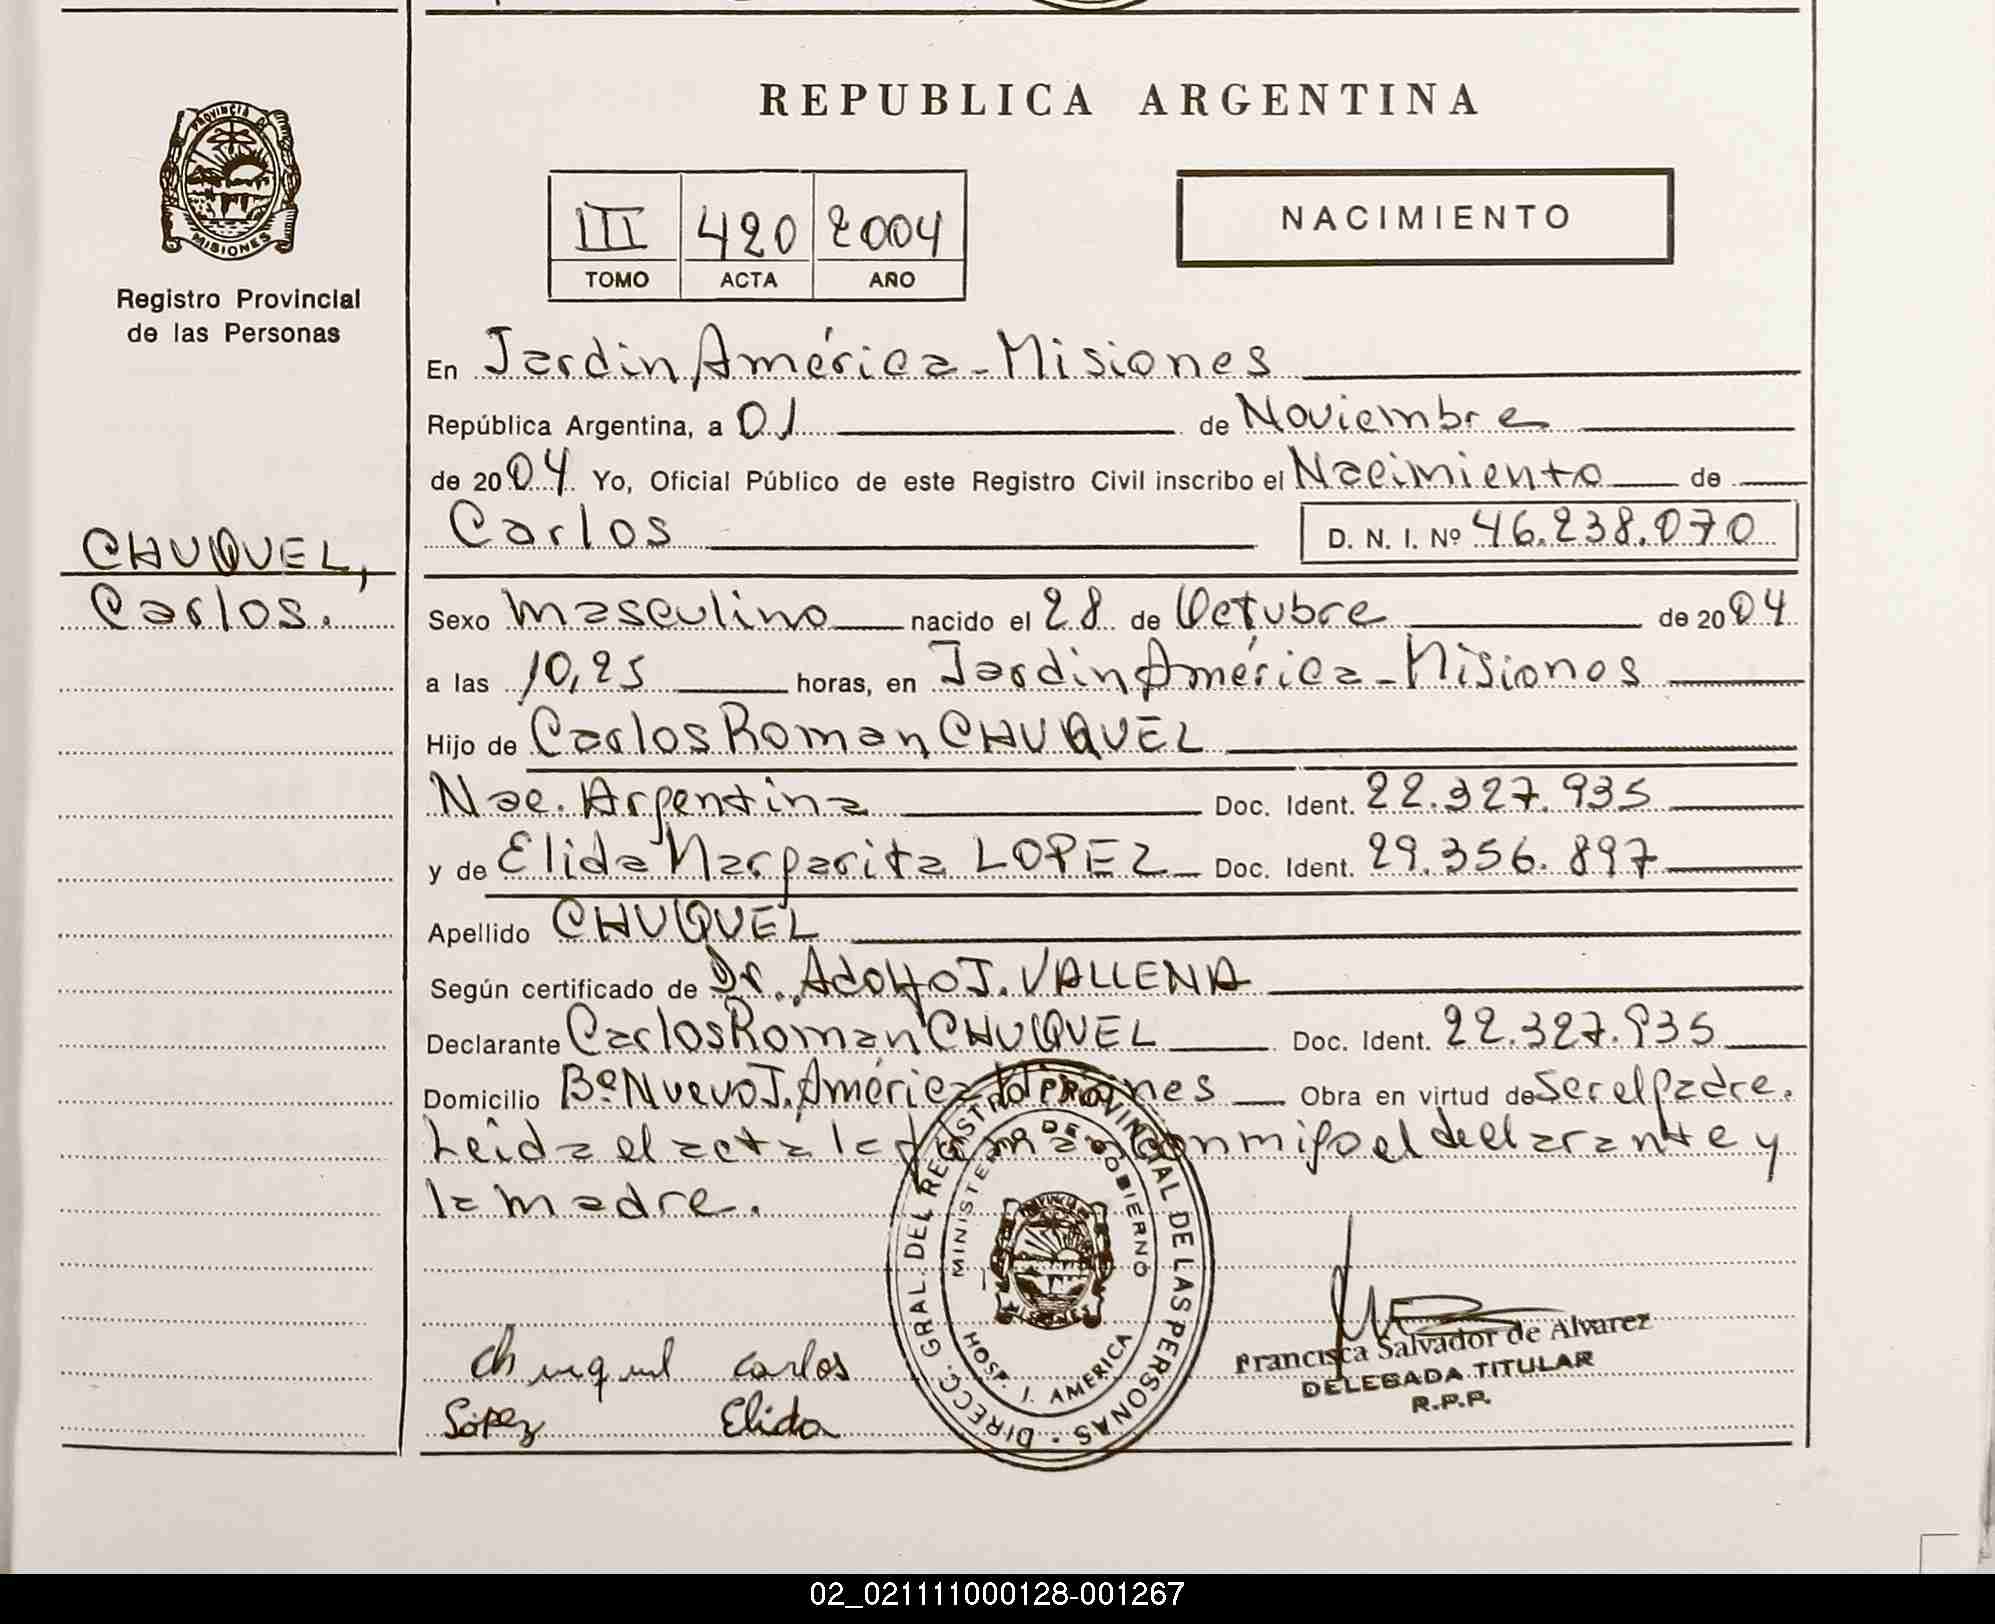 REPUBLICA ARGENTINA
PROVINCIA DE
MISIONES
Registro Provincial
de las Personas
CHUQUEL,
Carlos.
III 420 2004
TOMO ACTA AÑO
NACIMIENTO
En Jardin América - Misiones
República Argentina, a 01 de Noviembre
de 2004 Yo, Oficial Público de este Registro Civil inscribo el Nacimiento de
Carlos D. N. I. Nº 46.238.070
Sexo Masculino nacido el 28 de Octubre de 2004
a las 10,25 horas, en Jardin América - Misiones
Hijo de Carlos Roman CHUQUEL
Nac. Argentina Doc. Ident. 22.327.935
y de Elida Margarita LOPEZ Doc. Ident. 29.356.897
Apellido CHUQUEL
Según certificado de Dr. Adolfo J. VALLENA
Declarante Carlos Roman CHUQUEL Doc. Ident. 22.327.935
Domicilio Bº Nuevo J. América Misiones Obra en virtud de Ser el padre.
Leída el acta la firman conmigo el declarante y
la madre.
DIRECC. GRAL. DEL REGISTRO PROVINCIAL DE LAS PERSONAS
MINISTERIO DE GOBIERNO
HOSP. J. AMERICA
Chuquel Carlos
López Elida
Francisca Salvador de Alvarez
DELEGADA TITULAR
R.P.P.
02_021111000128-001267